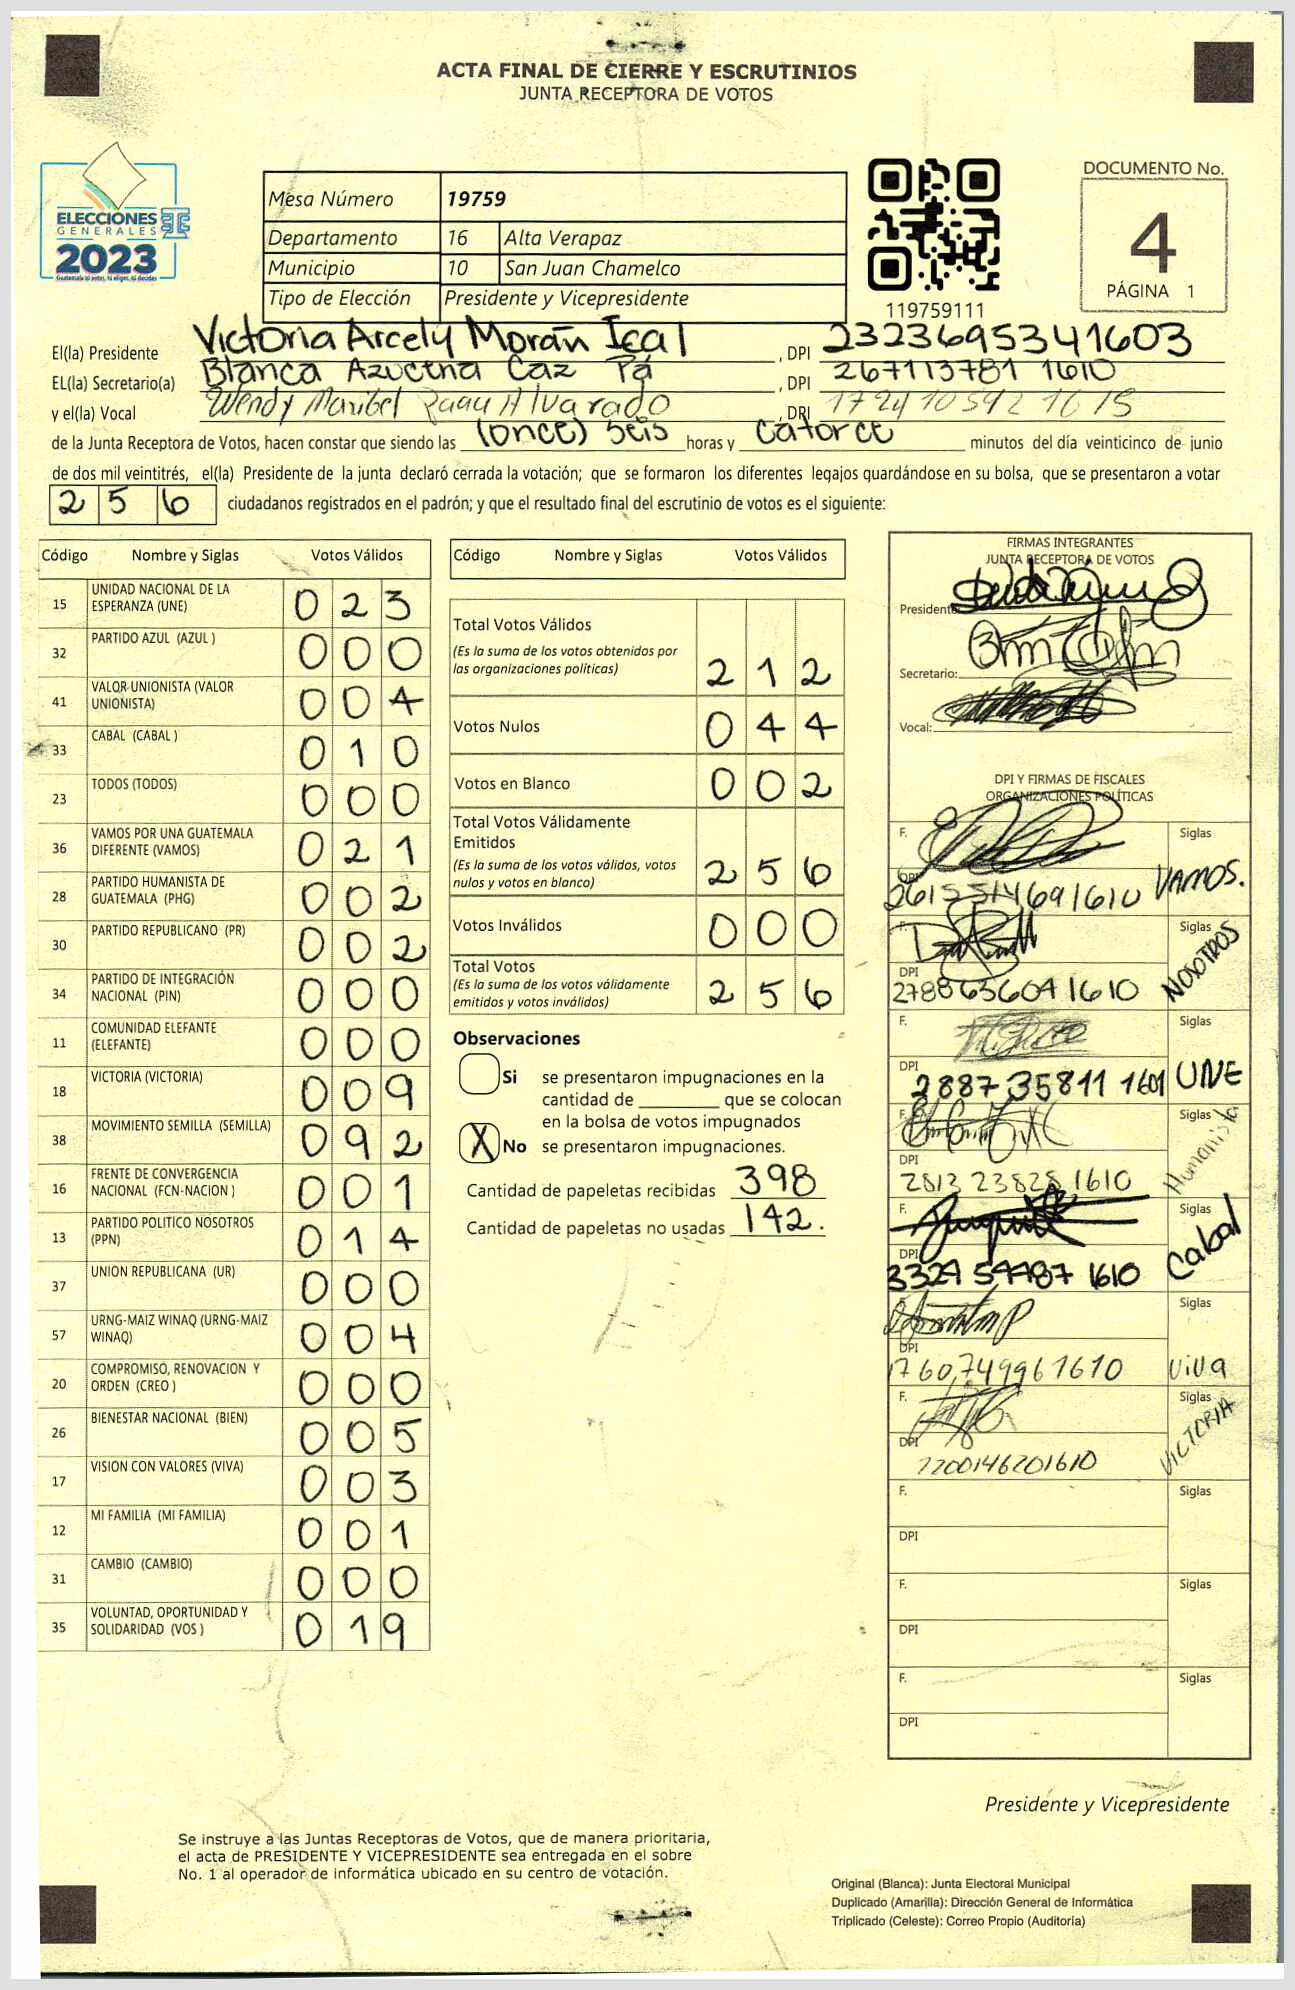 ACTA FINAL DE CIERRE Y ESCRUTINIOS
JUNTA RECEPTORA DE VOTOS
ELECCIONES
GENERALES
2023
Mesa Número 19759
Departamento 16 Alta Verapaz
Municipio 10 San Juan Chamelco
Tipo de Elección Presidente y Vicepresidente
119759111
DOCUMENTO No.
4
PÁGINA 1
El(la) Presidente Victoria Arcely Morán Ical, DPI 2323695341603
EL(la) Secretario(a) Blanca Azucena Caz Pá, DPI 267113781 1610
y el(la) Vocal Wendy Maribel Alvarado, DPI
de la Junta Receptora de Votos, hacen constar que siendo las (once) seis horas y catorce minutos del día veinticinco de junio
de dos mil veintitrés, el(la) Presidente de la junta declaró cerrada la votación; que se formaron los diferentes legajos guardándose en su bolsa, que se presentaron a votar
256 ciudadanos registrados en el padrón; y que el resultado final del escrutinio de votos es el siguiente:
Código Nombre y Siglas Votos Válidos
15 UNIDAD NACIONAL DE LA ESPERANZA (UNE) 023
32 PARTIDO AZUL (AZUL ) 000
41 VALOR UNIONISTA (VALOR UNIONISTA) 004
33 CABAL (CABAL ) 010
23 TODOS (TODOS) 000
36 VAMOS POR UNA GUATEMALA DIFERENTE (VAMOS) 021
28 PARTIDO HUMANISTA DE GUATEMALA (PHG) 002
30 PARTIDO REPUBLICANO (PR) 002
34 PARTIDO DE INTEGRACIÓN NACIONAL (PIN) 000
11 COMUNIDAD ELEFANTE (ELEFANTE) 000
18 VICTORIA (VICTORIA) 009
38 MOVIMIENTO SEMILLA (SEMILLA) 092
16 FRENTE DE CONVERGENCIA NACIONAL (FCN-NACION ) 001
13 PARTIDO POLITICO NOSOTROS (PPN) 014
37 UNION REPUBLICANA (UR) 000
57 URNG-MAIZ WINAQ (URNG-MAIZ WINAQ) 004
20 COMPROMISO, RENOVACION Y ORDEN (CREO ) 000
26 BIENESTAR NACIONAL (BIEN) 005
17 VISION CON VALORES (VIVA) 003
12 MI FAMILIA (MI FAMILIA) 001
31 CAMBIO (CAMBIO) 000
35 VOLUNTAD, OPORTUNIDAD Y SOLIDARIDAD (VOS ) 019
Código Nombre y Siglas Votos Válidos
Total Votos Válidos
(Es la suma de los votos obtenidos por
las organizaciones políticas) 212
Votos Nulos 044
Votos en Blanco 002
Total Votos Válidamente
Emitidos
(Es la suma de los votos válidos, votos
nulos y votos en blanco) 256
Votos Inválidos 000
Total Votos
(Es la suma de los votos válidamente
emitidos y votos inválidos) 256
Observaciones
Si se presentaron impugnaciones en la
cantidad de ________ que se colocan
en la bolsa de votos impugnados
X No se presentaron impugnaciones.
Cantidad de papeletas recibidas 398
Cantidad de papeletas no usadas 142.
FIRMAS INTEGRANTES
JUNTA RECEPTORA DE VOTOS
Presidente:
Secretario:
Vocal:
DPI Y FIRMAS DE FISCALES
ORGANIZACIONES POLÍTICAS
F. Siglas VAMOS.
DPI 2615514691610
F. Siglas NOSOTROS
DPI 2788656041610
F. Siglas UNE
DPI 2887 35811 1601
F. Siglas Humanista
DPI 2813 23828 1610
F. Siglas Cabal
DPI 3329 54487 1610
F. Siglas Viva
DPI 1760,749961610
F. Siglas VICTORIA
DPI 2200146201610
F. Siglas
DPI
F. Siglas
DPI
F. Siglas
DPI
Presidente y Vicepresidente
Se instruye a las Juntas Receptoras de Votos, que de manera prioritaria,
el acta de PRESIDENTE Y VICEPRESIDENTE sea entregada en el sobre
No. 1 al operador de informática ubicado en su centro de votación.
Original (Blanca): Junta Electoral Municipal
Duplicado (Amarilla): Dirección General de Informática
Triplicado (Celeste): Correo Propio (Auditoría)